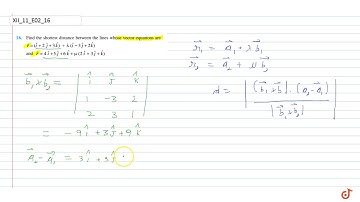 XII_11_E02_16
16. Find the shortest distance between the lines whose vector equations are
r⃗ = (î + 2ĵ + 3k̂) + λ(î − 3ĵ + 2k̂)
and r⃗ = 4î + 5ĵ + 6k̂ + μ(2î + 3ĵ + k̂)
r⃗₁ = a⃗₁ + λb⃗₁
r⃗₂ = a⃗₂ + μb⃗₂
b⃗₁×b⃗₂ = | î ĵ k̂ |
| 1 −3 2 |
| 2 3 1 |
d = | (b⃗₁×b⃗₂)·(a⃗₂−a⃗₁) |
| |b⃗₁×b⃗₂| |
= −9î + 3ĵ + 9k̂
a⃗₂−a⃗₁ = 3î + 3ĵ